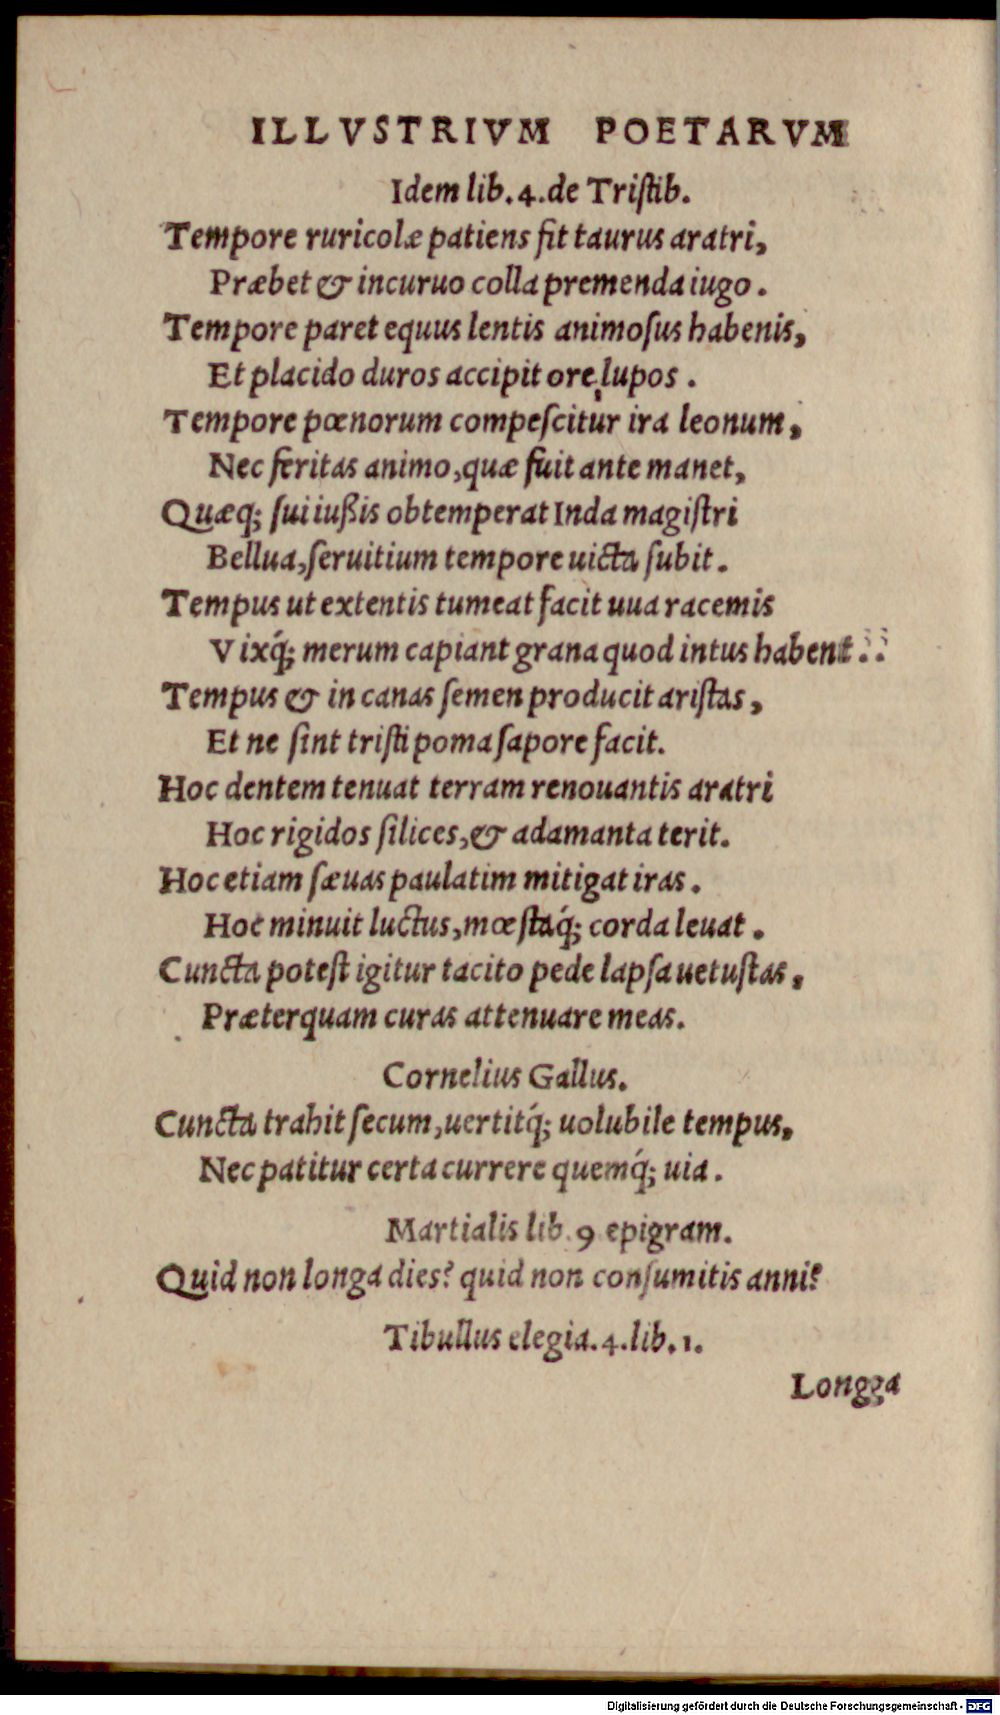 ILLVSTRIVM POETARVM
Idem lib. 4. de Tristib.
Tempore ruricolæ patiens fit taurus aratri,
Præbet & incuruo colla premenda iugo.
Tempore paret equus lentis animoſus habenis,
Et placido duros accipit ore lupos.
Tempore pœnorum compeſcitur ira leonum,
Nec feritas animo, quæ fuit ante manet,
Quæq; ſui iußis obtemperat Inda magiſtri
Bellua, ſeruitium tempore uicta ſubit.
Tempus ut extentis tumeat facit uua racemis
Vixq́; merum capiant grana quod intus habent.
Tempus & in canas ſemen producit ariſtas,
Et ne ſint triſti poma ſapore facit.
Hoc dentem tenuat terram renouantis aratri
Hoc rigidos ſilices, & adamanta terit.
Hoc etiam ſæuas paulatim mitigat iras.
Hoc minuit luctus, mœſtaq́; corda leuat.
Cuncta poteſt igitur tacito pede lapſa uetuſtas,
Præterquam curas attenuare meas.
Cornelius Gallus.
Cuncta trahit ſecum, uertitq́; uolubile tempus,
Nec patitur certa currere quemq́; uia.
Martialis lib. 9 epigram.
Quid non longa dies? quid non conſumitis anni?
Tibullus elegia. 4. lib. 1.
Longga
Digitalisierung gefördert durch die Deutsche Forschungsgemeinschaft - DFG